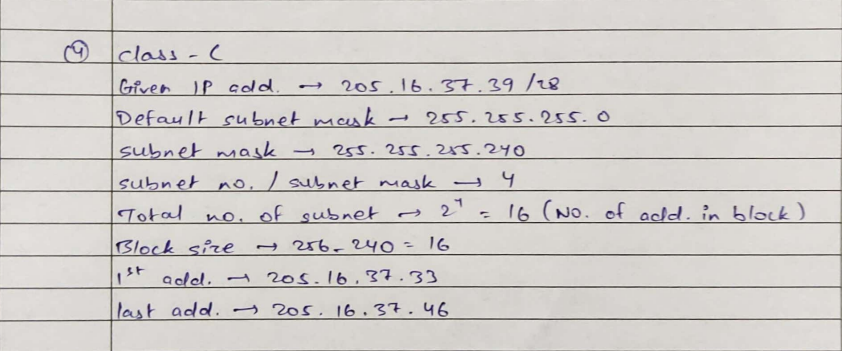 (4) class - C
Given IP add. → 205.16.37.39 /28
Default subnet mask → 255.255.255.0
subnet mask → 255.255.255.240
subnet no. / subnet mask → 4
Total no. of subnet → 2⁴ = 16 (No. of add. in block)
Block size → 256 - 240 = 16
1st add. → 205.16.37.33
last add. → 205.16.37.46